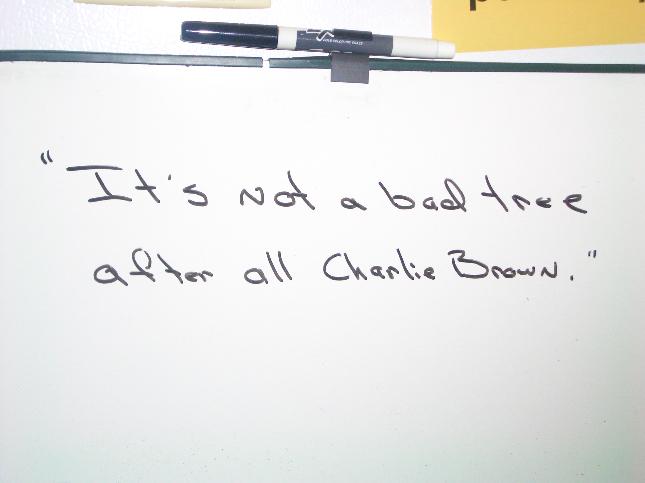 "It's not a bad tree
after all Charlie Brown."